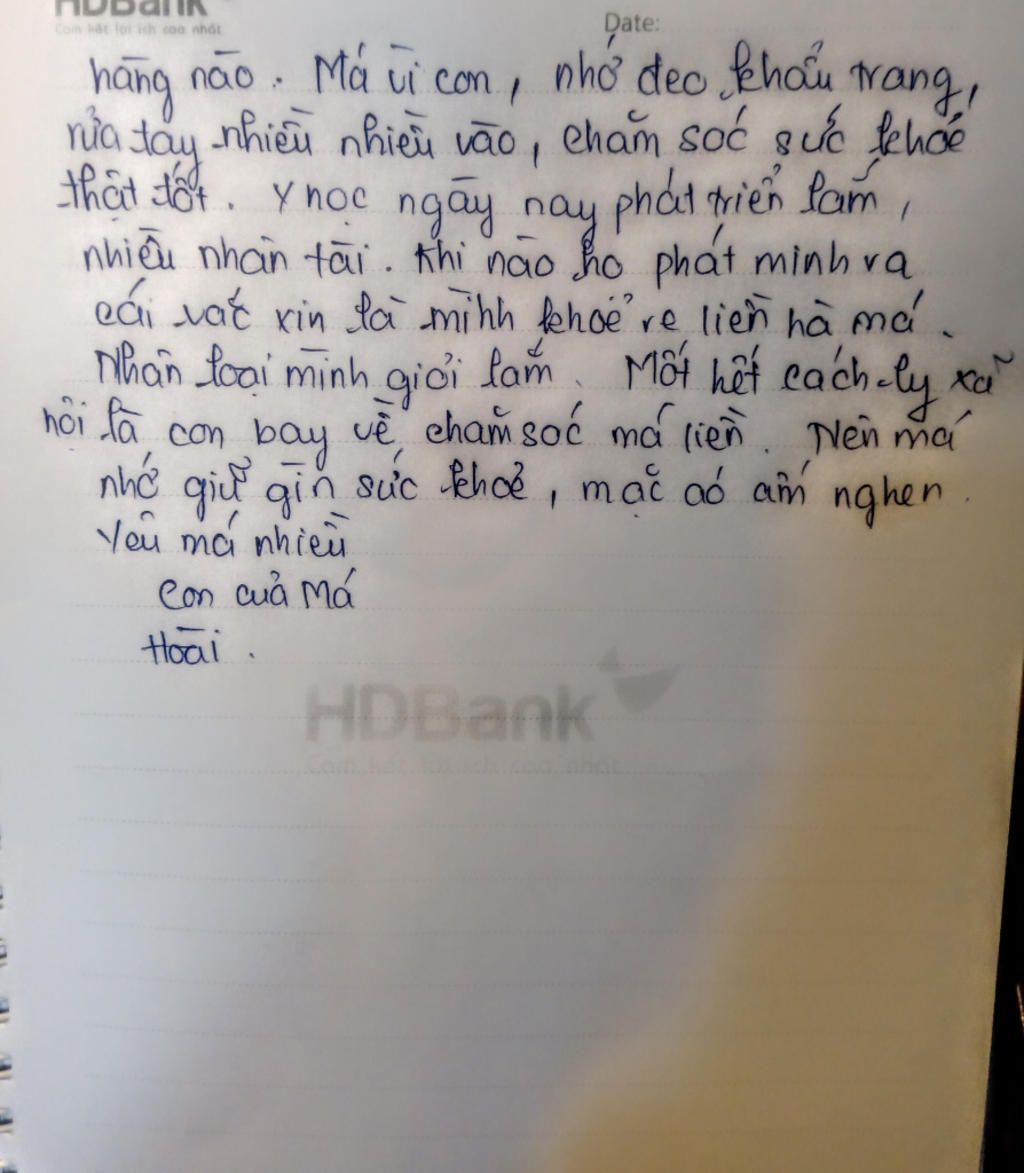 HDBank
Cam kết lợi ích cao nhất
Date:
hàng nào. Má vì con, nhớ đeo khẩu trang,
rửa tay nhiều nhiều vào, chăm sóc sức khoẻ
thật tốt. Y học ngày nay phát triển lắm,
nhiều nhân tài. Khi nào họ phát minh ra
cái vắc xin là mình khoẻ re liền hà má.
Nhân loại mình giỏi lắm. Mốt hết cách ly xã
hội là con bay về chăm sóc má liền. Nên má
nhớ giữ gìn sức khoẻ, mặc aó ấm nghen.
Yêu má nhiều
Con củả Má
Hoài.
HDBank
Cam kết lợi ích cao nhất